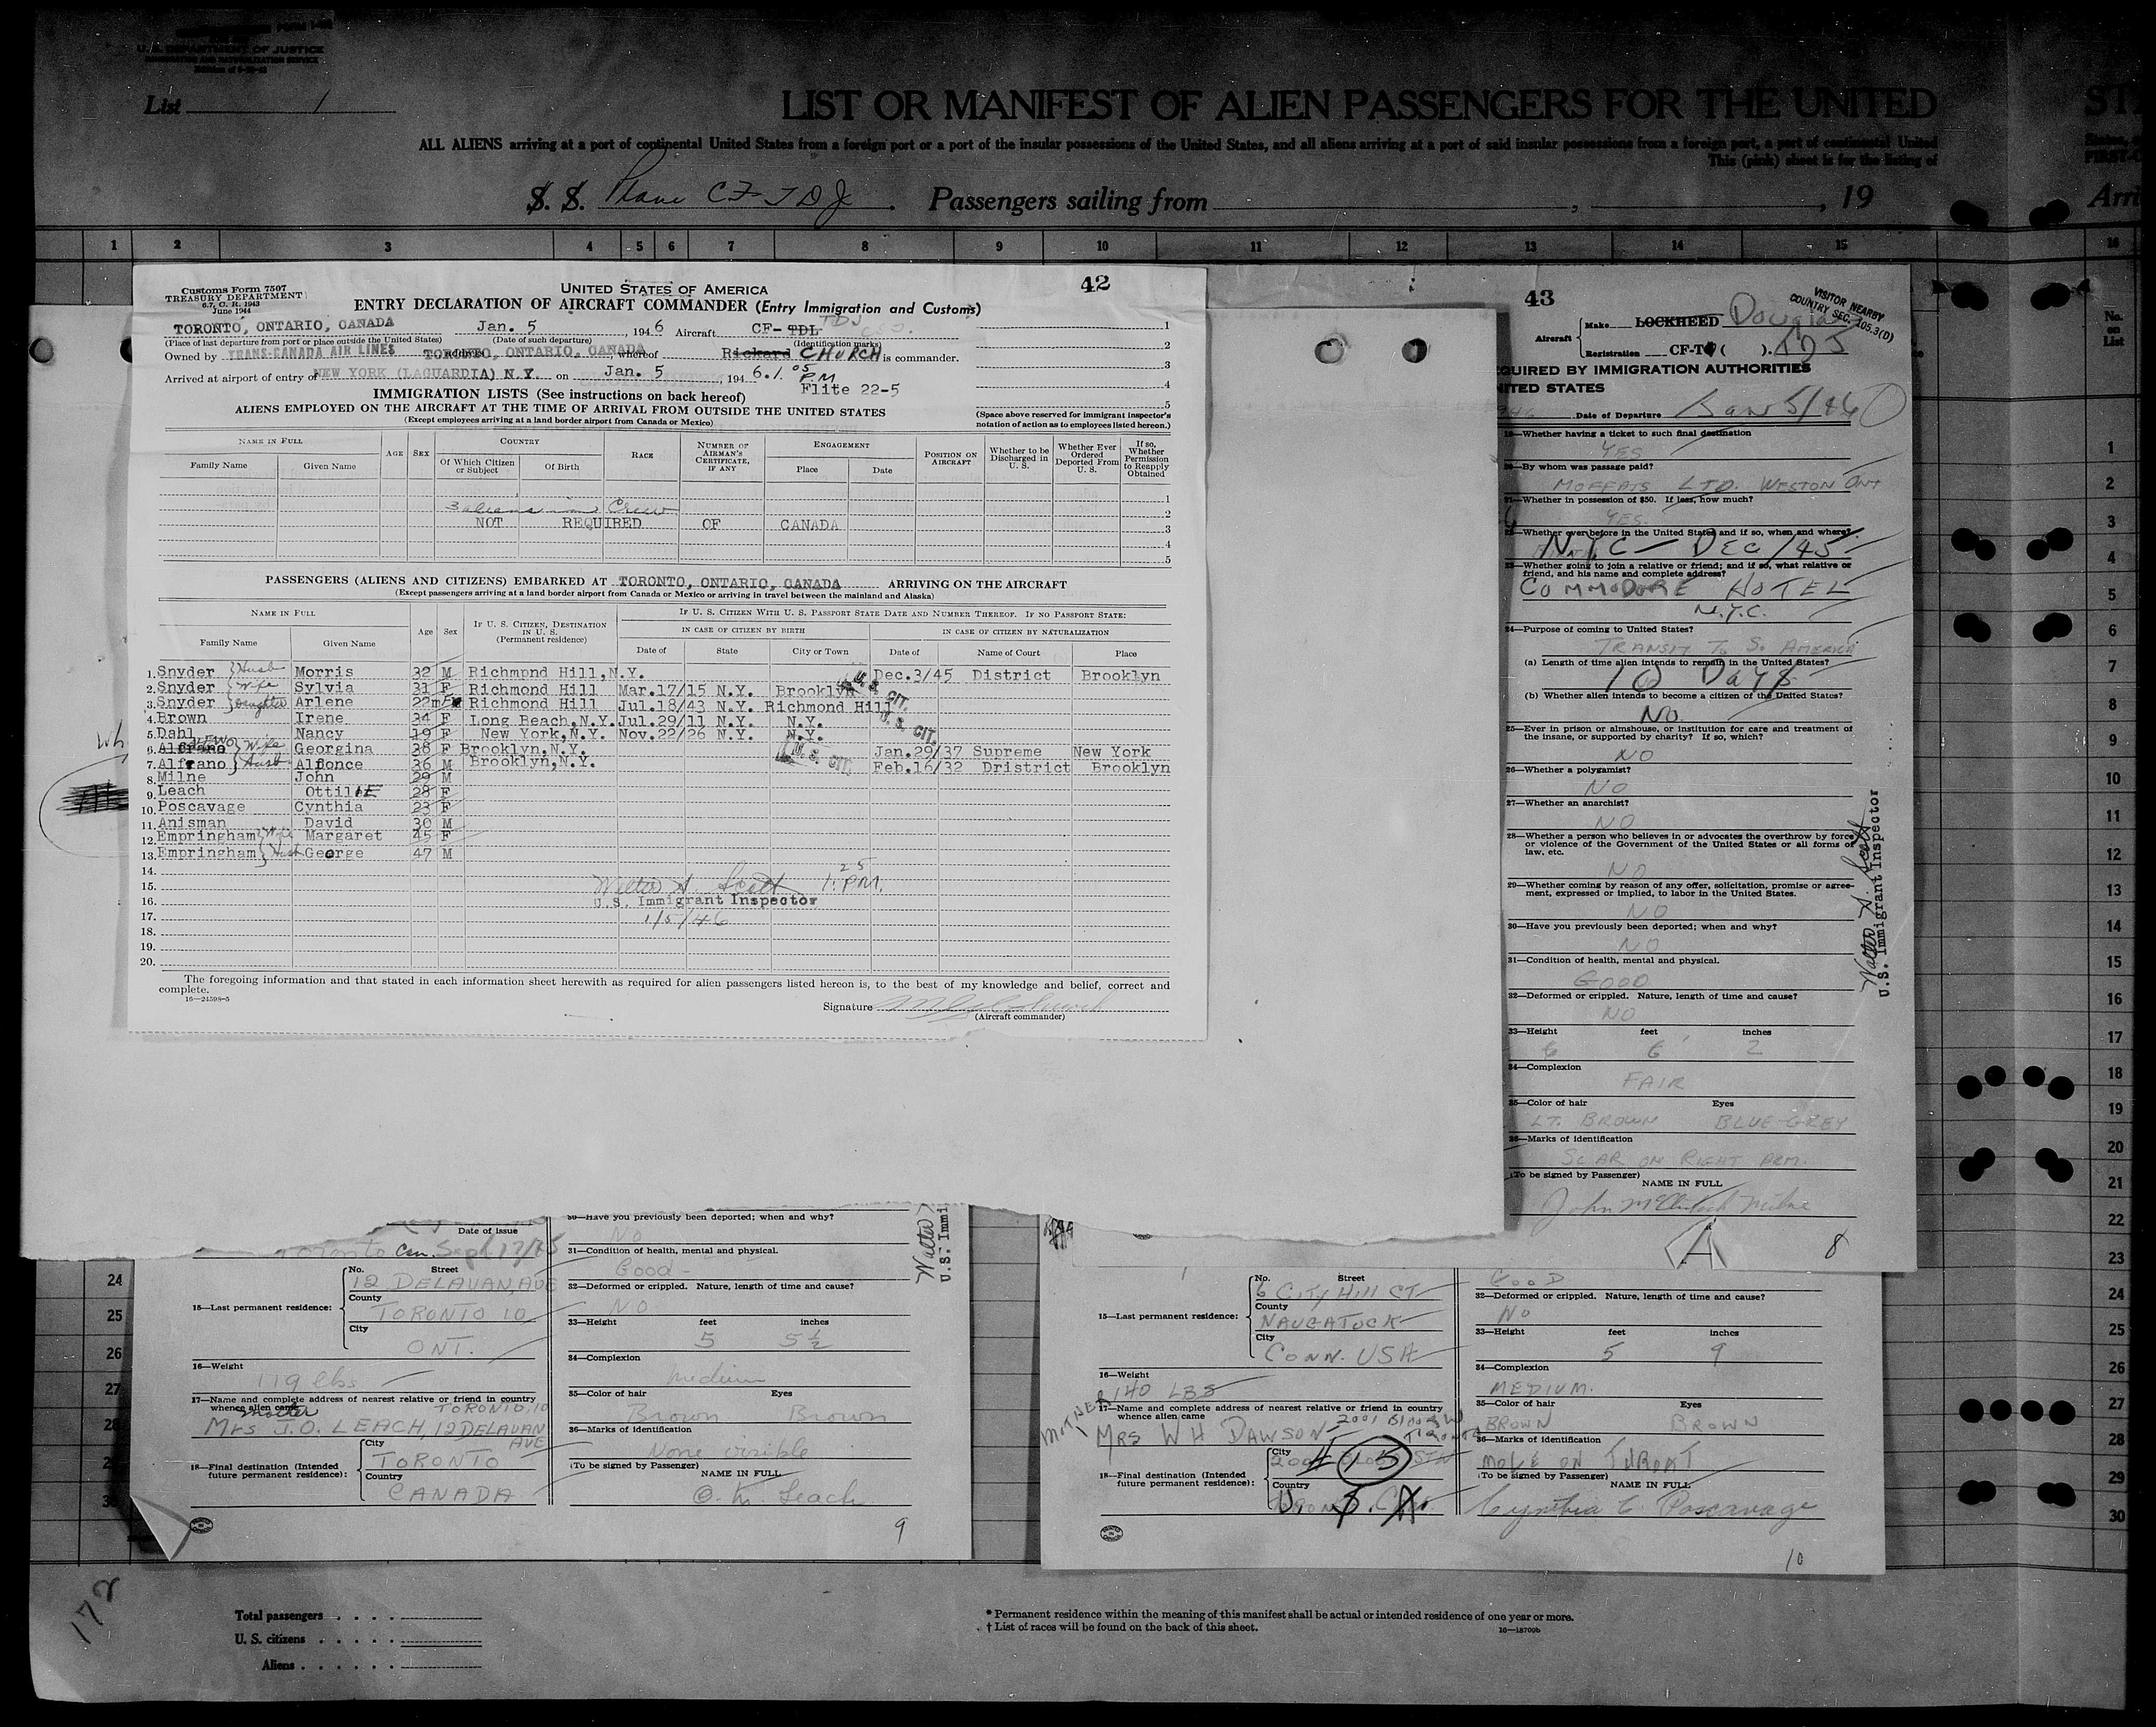 U. S. DEPARTMENT OF JUSTICE
IMMIGRATION AND NATURALIZATION SERVICE
List 1
LIST OR MANIFEST OF ALIEN PASSENGERS FOR THE UNITED
ALL ALIENS arriving at a port of continental United States from a foreign port or a port of the insular possessions of the United States, and all aliens arriving at a port of said insular possessions from a foreign port, a port of continental United
This (pink) sheet is for the listing of
S. S. Plane CF-TDJ. Passengers sailing from , , 19
1 2 3 4 5 6 7 8 9 10 11 12 13 14 15 16
Customs Form 7507
TREASURY DEPARTMENT
6.7, C. R. 1943
June 1944
UNITED STATES OF AMERICA
42
ENTRY DECLARATION OF AIRCRAFT COMMANDER (Entry Immigration and Customs)
TORONTO, ONTARIO, CANADA Jan. 5, 1946 Aircraft CF-TDL TDJ
(Place of last departure from port or place outside the United States) (Date of such departure) (Identification marks)
Owned by TRANS-CANADA AIR LINES TORONTO, ONTARIO, CANADA, whereof Rickard CHURCH is commander.
Arrived at airport of entry of NEW YORK (LAGUARDIA) N.Y. on Jan. 5, 1946. 1 05 PM
Flite 22-5
IMMIGRATION LISTS (See instructions on back hereof)
ALIENS EMPLOYED ON THE AIRCRAFT AT THE TIME OF ARRIVAL FROM OUTSIDE THE UNITED STATES
(Except employees arriving at a land border airport from Canada or Mexico)
1
2
3
4
5
(Space above reserved for immigrant inspector's
notation of action as to employees listed hereon.)
NAME IN FULL
Family Name Given Name
AGE SEX
COUNTRY
Of Which Citizen or Subject Of Birth
RACE
NUMBER OF AIRMAN'S CERTIFICATE, IF ANY
ENGAGEMENT
Place Date
POSITION ON AIRCRAFT
Whether to be Discharged in U. S.
Whether Ever Ordered Deported From U. S.
If so, Whether Permission to Reapply Obtained
1
3 aliens in Crew 2
NOT REQUIRED OF CANADA 3
4
5
PASSENGERS (ALIENS AND CITIZENS) EMBARKED AT TORONTO, ONTARIO, CANADA ARRIVING ON THE AIRCRAFT
(Except passengers arriving at a land border airport from Canada or Mexico or arriving in travel between the mainland and Alaska)
NAME IN FULL
Family Name Given Name
Age Sex
IF U. S. CITIZEN, DESTINATION IN U. S. (Permanent residence)
IF U. S. CITIZEN WITH U. S. PASSPORT STATE DATE AND NUMBER THEREOF. IF NO PASSPORT STATE:
IN CASE OF CITIZEN BY BIRTH IN CASE OF CITIZEN BY NATURALIZATION
Date of State City or Town Date of Name of Court Place
1. Snyder Husb Morris 32 M Richmpnd Hill, N.Y. Dec.3/45 District Brooklyn
2. Snyder Wife Sylvia 31 F Richmond Hill Mar.17/15 N.Y. Brooklyn U. S. CIT.
3. Snyder Daughter Arlene 22m F Richmond Hill Jul.18/43 N.Y. Richmond Hill
4. Brown Irene 34 F Long Beach, N.Y. Jul.29/11 N.Y. N.Y. U. S. CIT.
5. Dahl Nancy 19 F New York, N.Y. Nov.22/26 N.Y. N.Y.
6. Alfrano Wife Georgina 38 F Brooklyn, N.Y. U. S. CIT. Jan.29/37 Supreme New York
7. Alfrano Husb Alfonce 36 M Brooklyn, N.Y. Feb.16/32 Dristrict Brooklyn
8. Milne John 29 M
9. Leach OttilIE 28 F
10. Poscavage Cynthia 23 F
11. Anisman David 30 M
12. Empringham Wife Margaret 45 F
13. Empringham Husb George 47 M
14.
15. Walter A. Scott 1:25 PM.
16. U.S. Immigrant Inspector
17. 1/5/46
18.
19.
20.
The foregoing information and that stated in each information sheet herewith as required for alien passengers listed hereon is, to the best of my knowledge and belief, correct and
complete.
16—24598-5
Signature
(Aircraft commander)
43
VISITOR NEARBY
COUNTRY SEC. 105.3(D)
Aircraft Make LOCKHEED Douglas
Registration CF-T ( ). TDJ
QUIRED BY IMMIGRATION AUTHORITIES
NITED STATES
946 Date of Departure Jan 5/46
19—Whether having a ticket to such final destination
YES
20—By whom was passage paid?
MOFFATS LTD. WESTON ONT
21—Whether in possession of $50. If less, how much?
YES.
22—Whether ever before in the United States and if so, when and where?
N.Y.C — DEC/45
23—Whether going to join a relative or friend; and if so, what relative or
friend, and his name and complete address?
COMMODORE HOTEL
N.Y.C.
24—Purpose of coming to United States?
TRANSIT TO S. AMERICA
(a) Length of time alien intends to remain in the United States?
10 Days
(b) Whether alien intends to become a citizen of the United States?
NO.
25—Ever in prison or almshouse, or institution for care and treatment of
the insane, or supported by charity? If so, which?
NO
26—Whether a polygamist?
NO
27—Whether an anarchist?
NO
28—Whether a person who believes in or advocates the overthrow by force
or violence of the Government of the United States or all forms of
law, etc.
NO
29—Whether coming by reason of any offer, solicitation, promise or agree-
ment, expressed or implied, to labor in the United States.
NO
30—Have you previously been deported; when and why?
NO
31—Condition of health, mental and physical.
GOOD
32—Deformed or crippled. Nature, length of time and cause?
NO
33—Height feet inches
6 6' 2
34—Complexion
FAIR
35—Color of hair Eyes
LT. BROWN BLUE-GREY
36—Marks of identification
SCAR ON RIGHT ARM.
(To be signed by Passenger)
NAME IN FULL
John McClintock Milne
A 8
Walter A. Scott
U.S. Immigrant Inspector
Date of issue
Toronto Can. Sept 17/45
15—Last permanent residence:
No. Street
12 DELAVAN, AVE
County
TORONTO 10
City
ONT.
16—Weight
119 lbs
17—Name and complete address of nearest relative or friend in country
whence alien came TORONTO, 10
mother
MRS J.O. LEACH, 12 DELAVAN
AVE
18—Final destination (Intended
future permanent residence):
City
TORONTO
Country
CANADA
30—Have you previously been deported; when and why?
No
31—Condition of health, mental and physical.
Good -
32—Deformed or crippled. Nature, length of time and cause?
NO
33—Height feet inches
5 5½
34—Complexion
medium
35—Color of hair Eyes
Brown Brown
36—Marks of identification
None visible
(To be signed by Passenger)
NAME IN FULL
O. M. Leach
9
Walter
U.S. Immi
15—Last permanent residence:
No. Street
6 CITY HILL CT
County
NAUGATUCK
City
CONN. USA
16—Weight
140 LBS
17—Name and complete address of nearest relative or friend in country
whence alien came
MOTHER
MRS W H DAWSON 2001 Bloor W
TORONTO
18—Final destination (Intended
future permanent residence):
City
Country
GOOD
32—Deformed or crippled. Nature, length of time and cause?
NO
33—Height feet inches
5 9
34—Complexion
MEDIUM.
35—Color of hair Eyes
BROWN BROWN
36—Marks of identification
MOLE ON THROAT
(To be signed by Passenger)
NAME IN FULL
Cynthia C. Poscavage
10
No.
on
List
1
2
3
4
5
6
7
8
9
10
11
12
13
14
15
16
17
18
19
20
21
22
23
24
25
26
27
28
29
30
24
25
26
27
28
172
Total passengers . . . .
U. S. citizens . . . . .
Aliens . . . . . .
* Permanent residence within the meaning of this manifest shall be actual or intended residence of one year or more.
† List of races will be found on the back of this sheet.
16—18700b